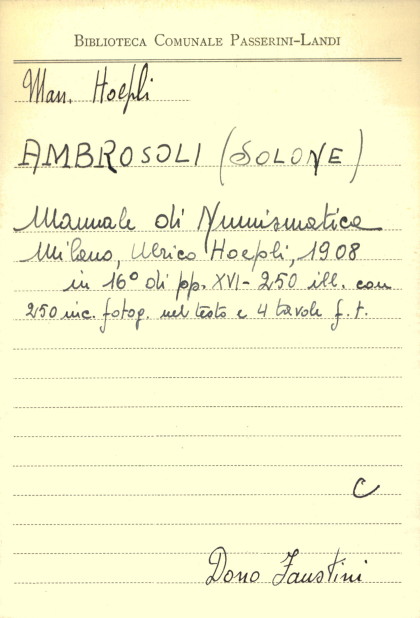 BIBLIOTECA COMUNALE PASSERINI-LANDI
Man. Hoepli
AMBROSOLI (SOLONE)
Manuale di Numismatica
Milano, Ulrico Hoepli, 1908
in 16° di pp. XVI-250 ill. con
250 inc. fotog. nel testo e 4 tavole f. t.
C
Dono Faustini